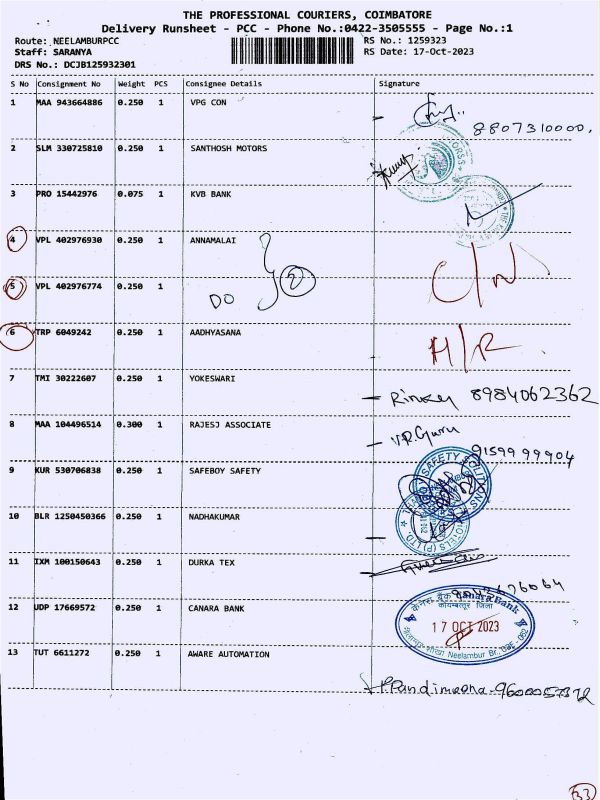 THE PROFESSIONAL COURIERS, COIMBATORE
Delivery Runsheet - PCC - Phone No.:0422-3505555 - Page No.:1
Route: NEELAMBURPCC RS No.: 1259323
Staff: SARANYA RS Date: 17-Oct-2023
DRS No.: DCJB125932301
S No Consignment No Weight PCS Consignee Details Signature
1 MAA 943664886 0.250 1 VPG CON
8807310000,
2 SLM 330725810 0.250 1 SANTHOSH MOTORS
3 PRO 15442976 0.075 1 KVB BANK
4 VPL 402976930 0.250 1 ANNAMALAI
C/N
5 VPL 402976774 0.250 1
DO 2
6 TRP 6049242 0.250 1 AADHYASANA
H/R
7 TMI 30222607 0.250 1 YOKESWARI
Rinkey 8984062362
8 MAA 104496514 0.300 1 RAJESJ ASSOCIATE
V.R.Guru
9159999904
9 KUR 530706838 0.250 1 SAFEBOY SAFETY
SAFETY SOLUTIONS
10 BLR 1250450366 0.250 1 NADHAKUMAR
HOTELS (P) LTD.
11 IXM 100150643 0.250 1 DURKA TEX
12 UDP 17669572 0.250 1 CANARA BANK
केनरा बैंक Canara Bank
कोयम्बत्तूर जिला
17 OCT 2023
Neelambur Br.,
13 TUT 6611272 0.250 1 AWARE AUTOMATION
33